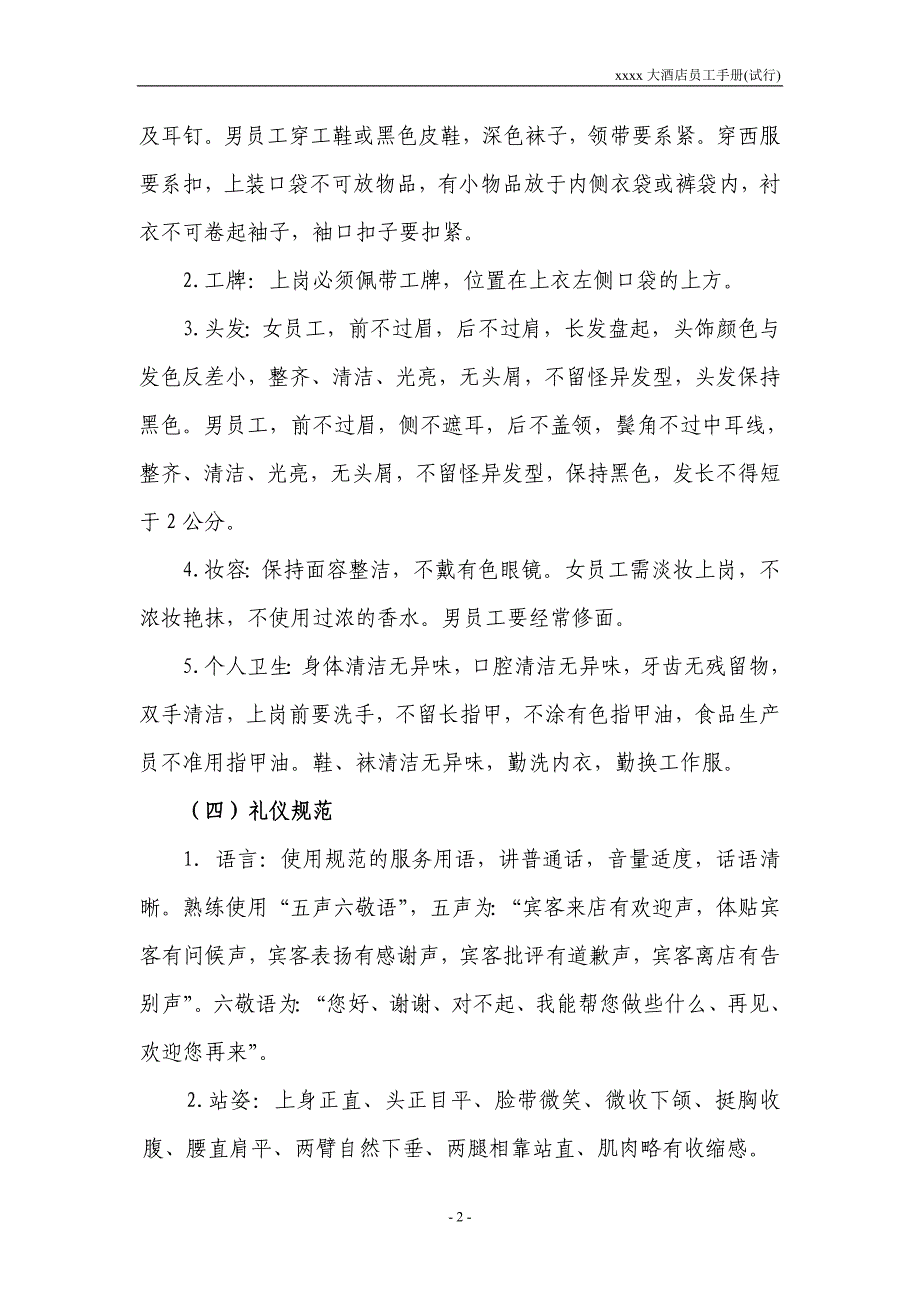 xxxx 大酒店员工手册(试行)
及耳钉。男员工穿工鞋或黑色皮鞋，深色袜子，领带要系紧。穿西服
要系扣，上装口袋不可放物品，有小物品放于内侧衣袋或裤袋内，衬
衣不可卷起袖子，袖口扣子要扣紧。
2.工牌：上岗必须佩带工牌，位置在上衣左侧口袋的上方。
3.头发：女员工，前不过眉，后不过肩，长发盘起，头饰颜色与
发色反差小，整齐、清洁、光亮，无头屑，不留怪异发型，头发保持
黑色。男员工，前不过眉，侧不遮耳，后不盖领，鬓角不过中耳线，
整齐、清洁、光亮，无头屑，不留怪异发型，保持黑色，发长不得短
于 2 公分。
4.妆容：保持面容整洁，不戴有色眼镜。女员工需淡妆上岗，不
浓妆艳抹，不使用过浓的香水。男员工要经常修面。
5.个人卫生：身体清洁无异味，口腔清洁无异味，牙齿无残留物，
双手清洁，上岗前要洗手，不留长指甲，不涂有色指甲油，食品生产
员不准用指甲油。鞋、袜清洁无异味，勤洗内衣，勤换工作服。
（四）礼仪规范
1. 语言：使用规范的服务用语，讲普通话，音量适度，话语清
晰。熟练使用“五声六敬语”，五声为：“宾客来店有欢迎声，体贴宾
客有问候声，宾客表扬有感谢声，宾客批评有道歉声，宾客离店有告
别声”。六敬语为：“您好、谢谢、对不起、我能帮您做些什么、再见、
欢迎您再来”。
2.站姿：上身正直、头正目平、脸带微笑、微收下颌、挺胸收
腹、腰直肩平、两臂自然下垂、两腿相靠站直、肌肉略有收缩感。
- 2 -